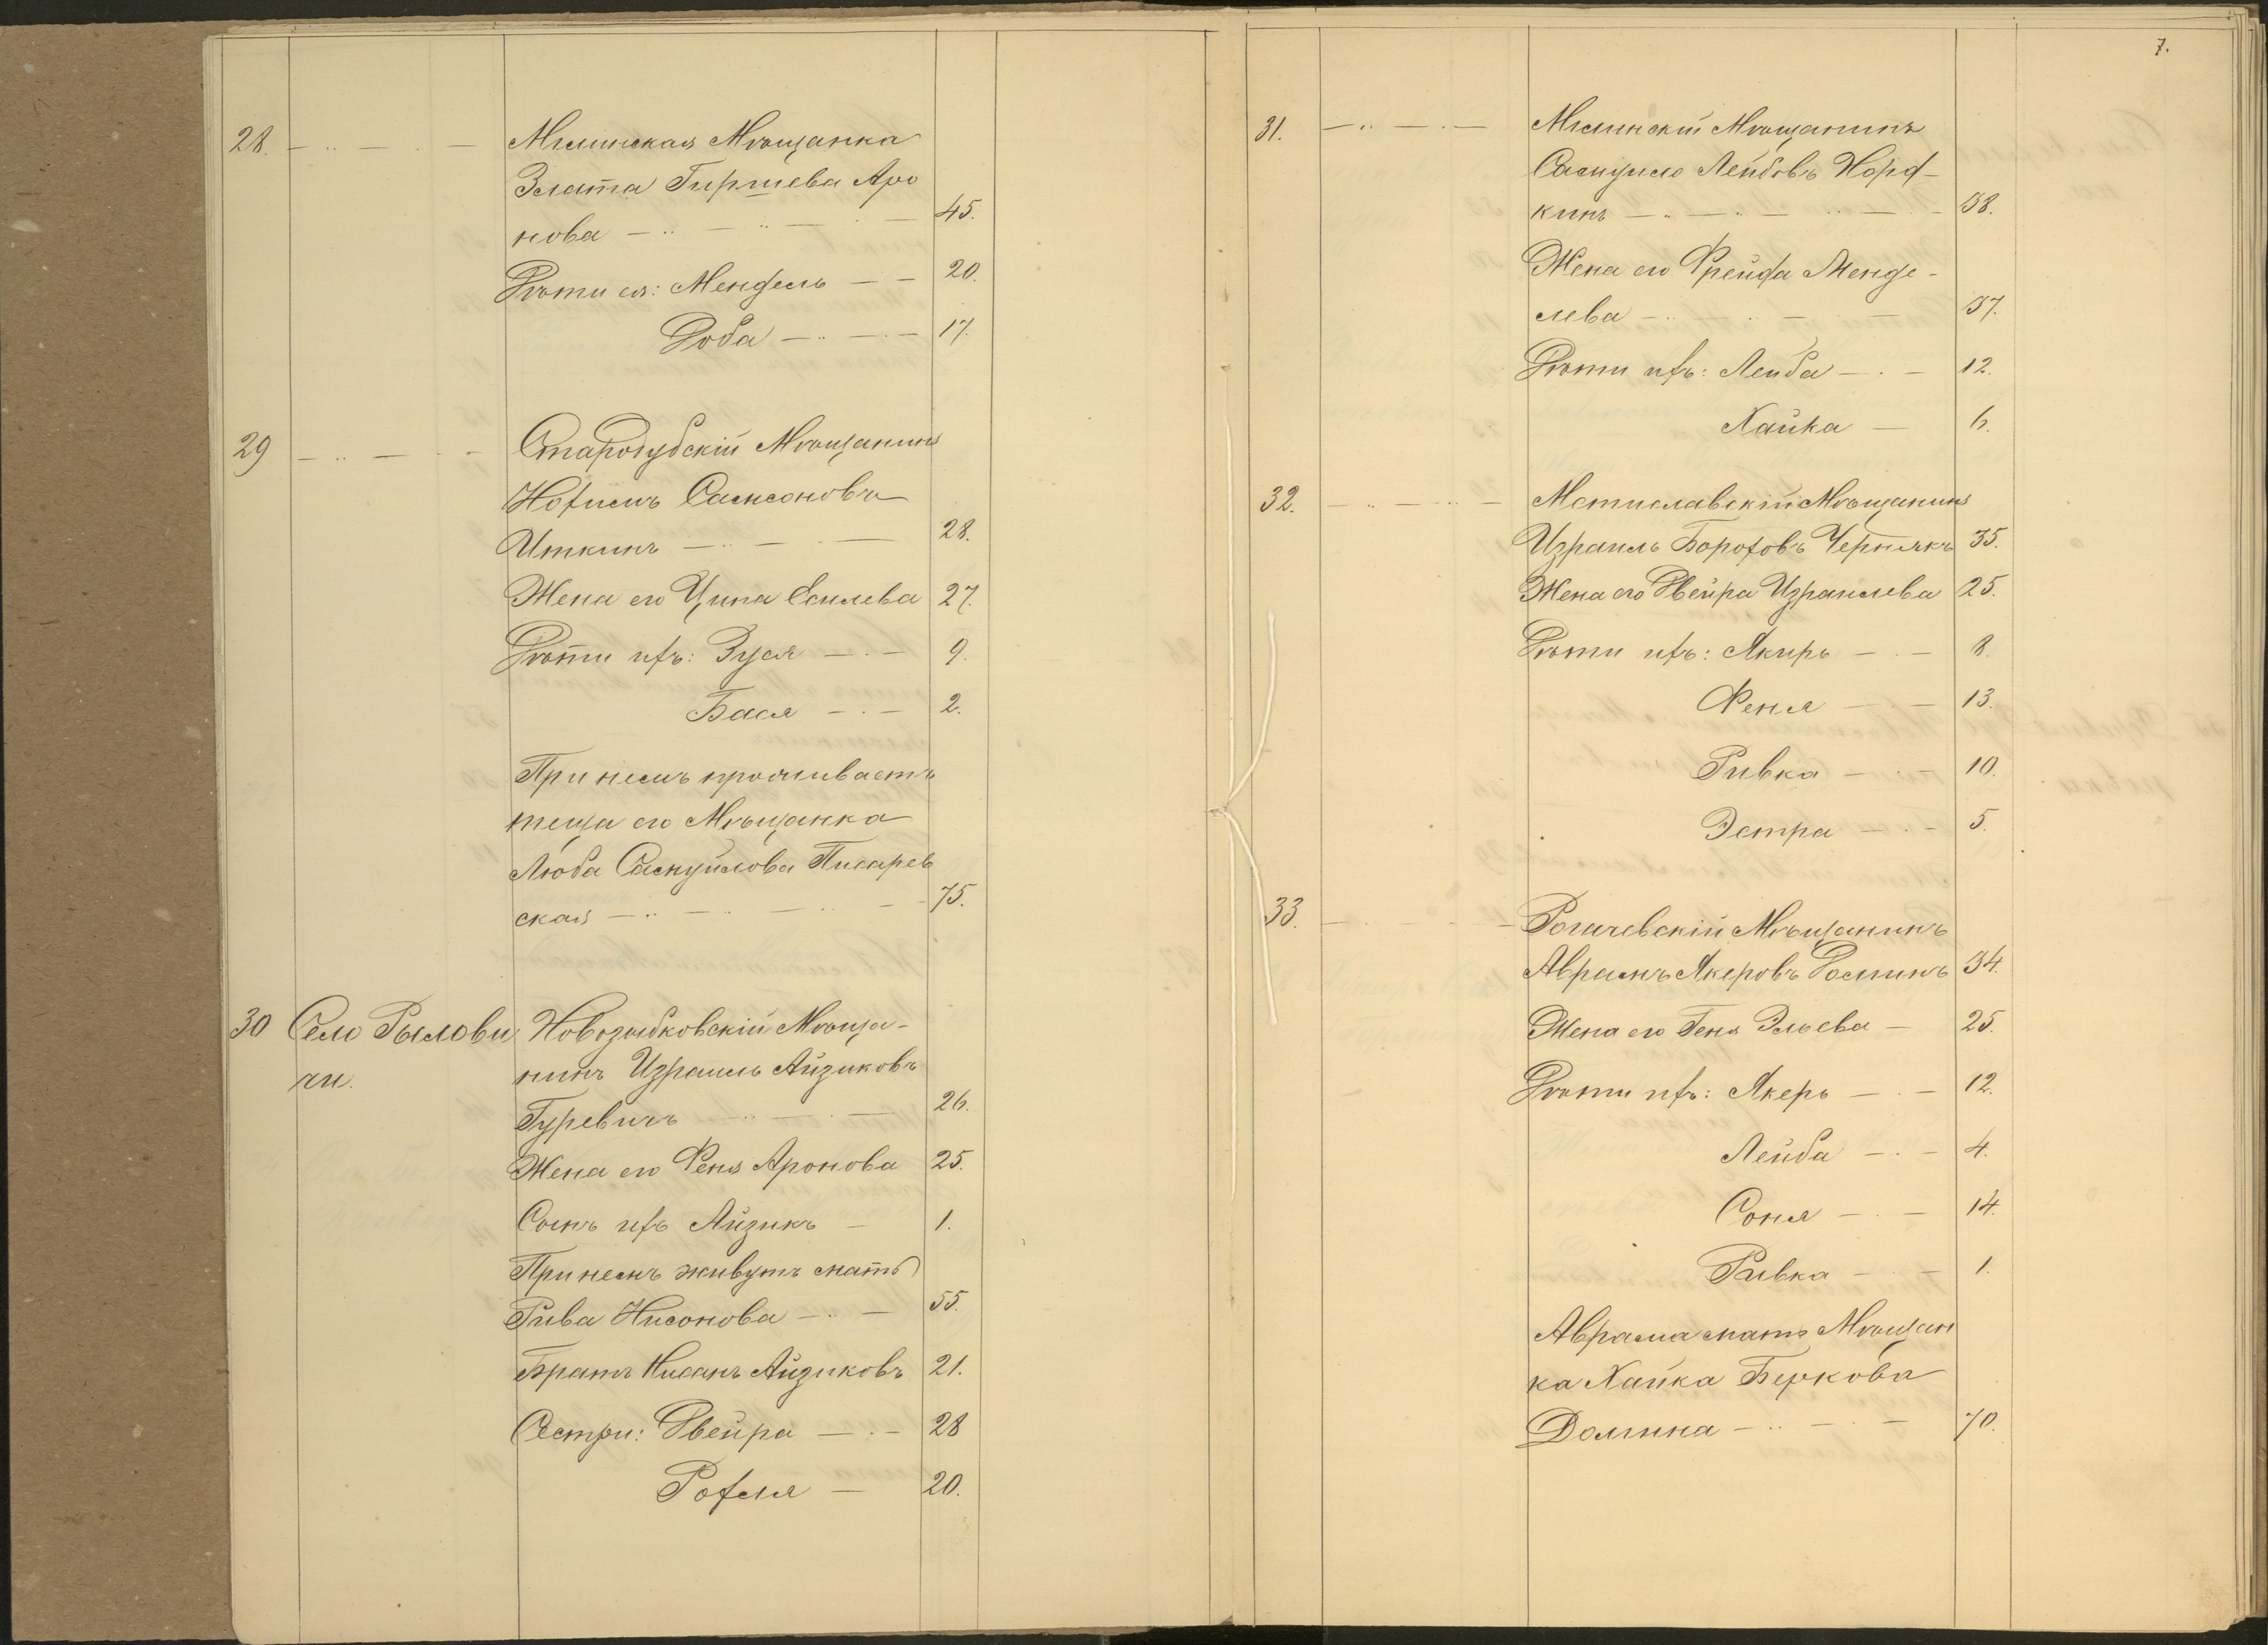 28. — .. — . — Мглинская Мѣщанка
Злата Гиршева Аро
нова — .. — .. — . — 45.
Дѣти ея: Мендель — — 20.
Доба — .. — . — 17.
29 — .. — . — Стародубскій Мѣщанинъ
Нохимъ Самсоновъ
Иткинъ — .. — . — 28.
Жена его Ципа Есилева 27.
Дѣти ихъ: Зуся — . — 9.
Бася — . — 2.
При немъ проживаетъ
теща его Мѣщанка
Люба Самуйлова Писарев
ская — .. — .. — .. — 75.
30 Село Рылови Новозыбковскій Мѣща-
чи. нинъ Израиль Айзиковъ
Гуревичъ — .. — . — 26.
Жена его Феня Аронова 25.
Сынъ ихъ Айзикъ — 1.
При немъ живутъ мать
Рива Нисонова — .. — 55.
Братъ Нисанъ Айзиковъ 21.
Сестры: Двейра — . — 28
Рохля — 20.
7.
31. — .. — . — Мглинскій Мѣщанинъ
Самуило Лейбовъ Норд-
кинъ — .. — .. — .. — . — 38.
Жена его Фрейда Менде-
лева — .. — .. — . — 37.
Дѣти ихъ: Лейба — . — 12.
Хайка — 6.
32. — .. — .. — Мстиславскій Мѣщанинъ
Израиль Бороховъ Чернякъ 35.
Жена его Двейра Израилева 25.
Дѣти ихъ: Якиръ — . — 8.
Феня — . — 13.
Ривка — . — 10.
Эстра — . — 5.
33. — . — . — Рогачевскій Мѣщанинъ
Аврамъ Якеровъ Долинъ 34.
Жена его Геня Эльева — 25.
Дѣти ихъ: Якеръ — . — 12.
Лейба — . — 4.
Соня — . — 14.
Рывка — . — 1.
Аврама мать Мѣщан
ка Хайка Беркова
Долина — .. — . — 70.